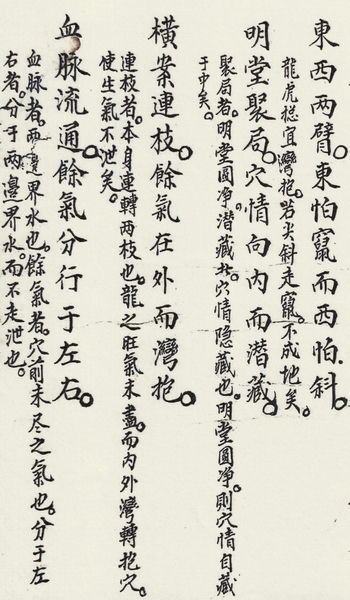 東西两臂。東怕竄而西怕斜。
龍虎揔宜灣抱。若尖斜走竄。不成地矣。
明堂聚局。穴情向内而潜藏。
聚局者。明堂圓净。潜藏者。穴情隐藏也。明堂圓净。則穴情自藏
于中矣。
横案連枝。餘氣在外而灣抱。
連枝者。本身連轉两枝也。龍之旺氣未盡。而内外灣轉抱穴。
使生氣不泄矣。
血脉流通。餘氣分行于左右。
血脉者。两邊界水也。餘氣者。穴前未尽之氣也。分于左
右者。分于两邊界水。而不走泄也。